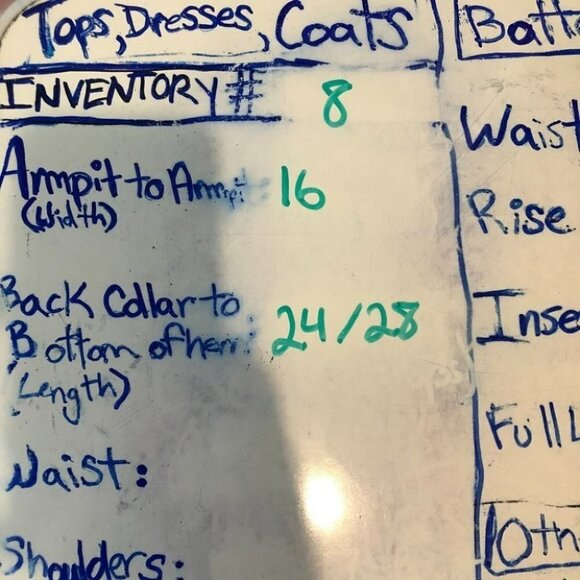 Tops, Dresses, Coats
INVENTORY # 8
Armpit to Armpit: 16
(Width)
Back Collar to
Bottom of hem: 24/28
(Length)
Waist:
Shoulders:
Batt
Waist
Rise
Inse
Full L
Oth